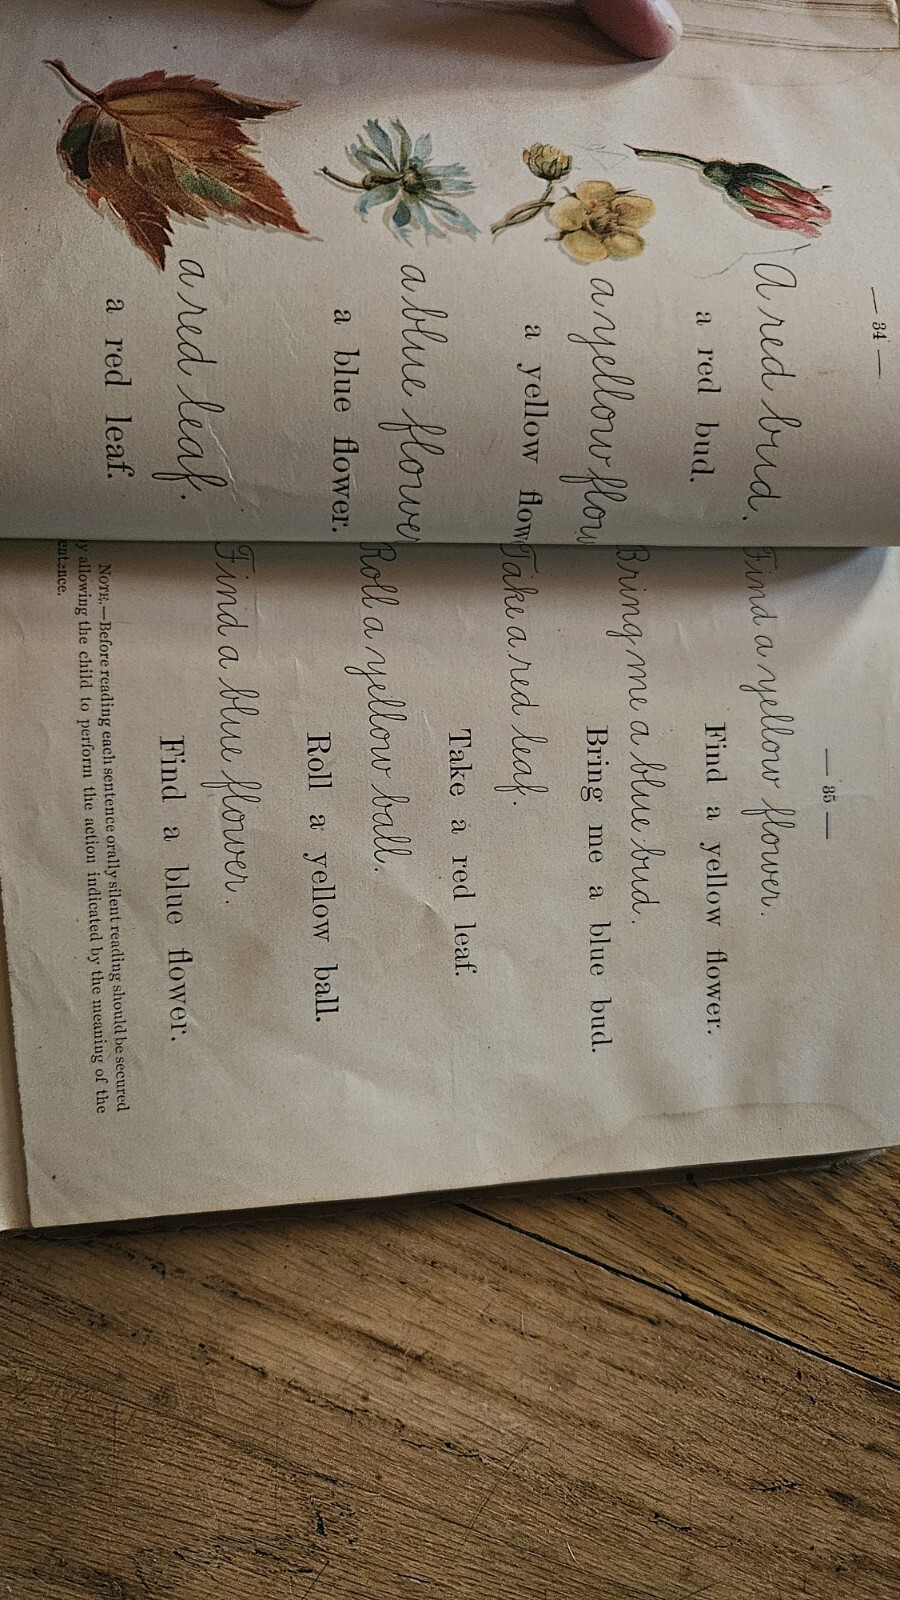 — 34 —
A red bud.
a red bud.
a yellow flow
a yellow flow
a blue flower
a blue flower.
a red leaf.
a red leaf.
— 35 —
Find a yellow flower.
Find a yellow flower.
Bring me a blue bud.
Bring me a blue bud.
Take a red leaf.
Take a red leaf.
Roll a yellow ball.
Roll a yellow ball.
Find a blue flower.
Find a blue flower.
NOTE.—Before reading each sentence orally silent reading should be secured
y allowing the child to perform the action indicated by the meaning of the
entence.